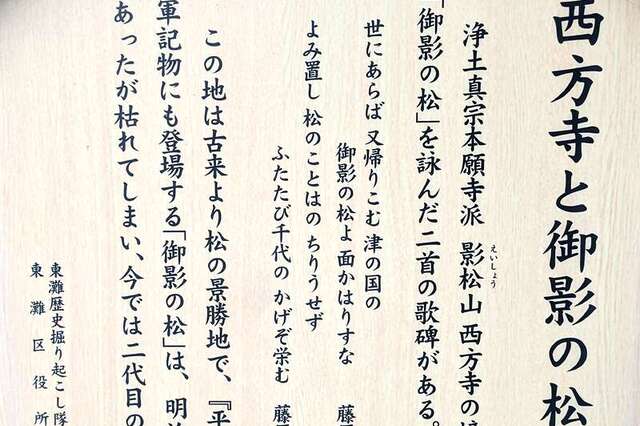 西方寺と御影の松
浄土真宗本願寺派 影松山 西方寺の
えいしょう
「御影の松」を詠んだ二首の歌碑がある。
世にあらば 又帰りこむ 津の国の
御影の松よ 面かはりすな 藤
よみ置し 松のことはの ちりうせず
ふたたび千代の かげぞ栄む 藤
この地は古来より松の景勝地で、『平
軍記物にも登場する「御影の松」は、明
あったが枯れてしまい、今では二代目の
東灘歴史掘り起こし隊
東灘区役所